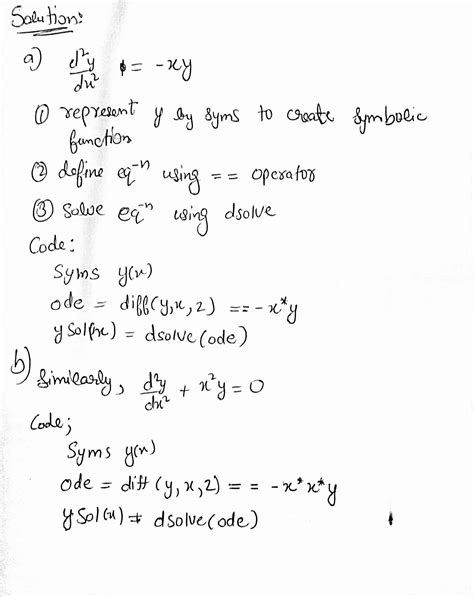 Solution:
a) d²y/dx² = -xy
① represent y by syms to create symbolic
function
② define eq-n using == operator
③ Solve eq-n using dsolve
Code:
Syms y(x)
ode = diff(y,x,2) == -x*y
ySol(x) = dsolve(ode)
b) Similarly, d²y/dx² + x²y = 0
Code;
Syms y(x)
ode = diff(y,x,2) == -x*x*y
ySol(x) = dsolve(ode)